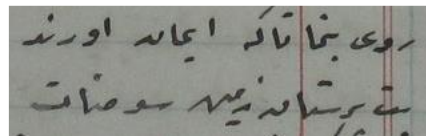 روی بنما تا که ایمان اورند
بت پرستان زمین سومنات